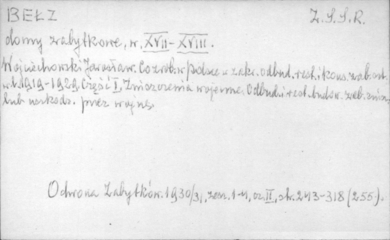 BEŁZ
Z.S.S.R.
domy zabytkowe, w. XVII-XVIII.
Wojciechowski Jarosław. Co zrob. w Polsce w zakr. odbud. rest. i kons. zab. arch.
w l. 1919-1929. Część I. Zniszczenia wojenne. Odbud. i rest. budow. zab. znisz.
lub uszkodz. przez wojnę.
Ochrona Zabytków. 1930/31, zesz. 1-4, cz. II, str. 243-318 (255).